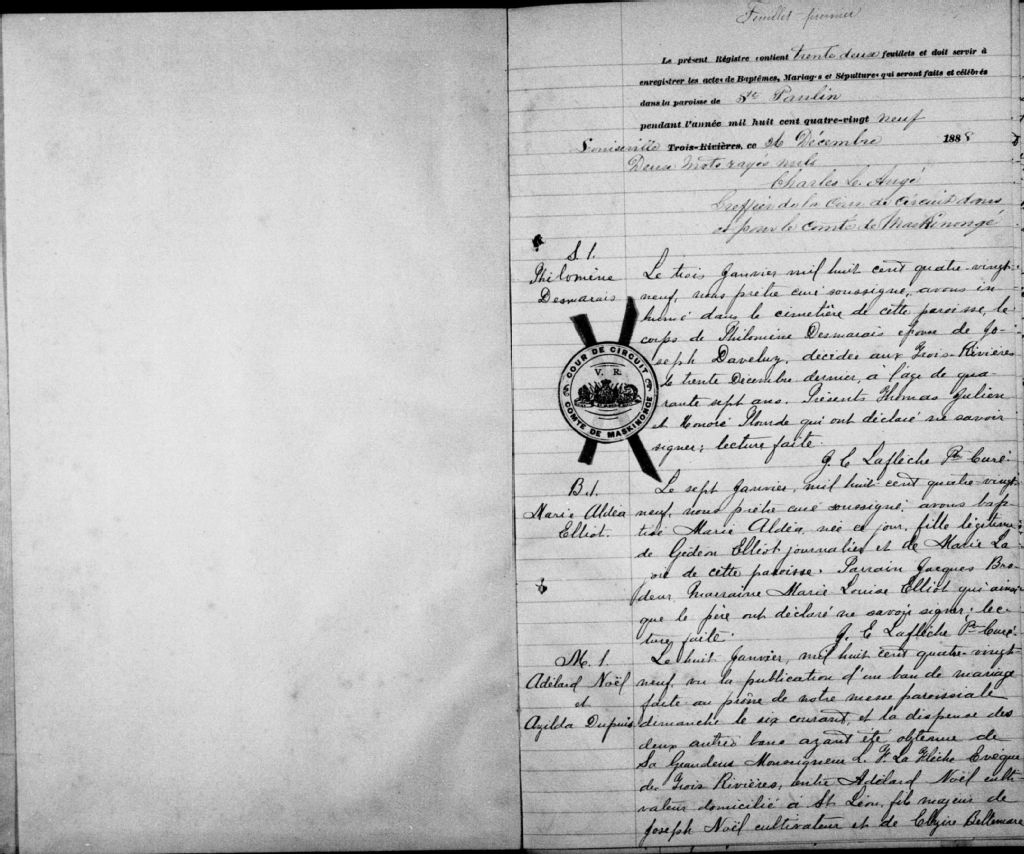 Feuillet premier
Le présent Régistre contient trente deux feuillets et doit servir à
enregistrer les actes de Baptêmes, Mariages et Sépultures qui seront faits et célébrés
dans la paroisse de St Paulin
pendant l'année mil huit cent quatre-vingt neuf
Louiseville Trois-Rivières, ce 26 Décembre 1888
Deux mots rayés nuls
Charles Le Angé
Greffier de la Cour de circuit dans
et pour le comté de Maskinongé
S. 1.
Philomène
Desmarais
Le trois Janvier mil huit cent quatre-vingt-
neuf, nous prêtre curé soussigné, avons in-
humé dans le cimetière de cette paroisse, le
corps de Philomène Desmarais épouse de Jo-
seph Daveluy, décédée aux Trois-Rivières
le trente Décembre dernier, à l'âge de qua-
rante sept ans. Présents Thomas Julien
et Honoré Plourde qui ont déclaré ne savoir
signer; lecture faite.
COUR DE CIRCUIT
V. R.
COMTE DE MASKINONGE
J. E Laflèche Ptre Curé.
B. 1.
Marie Aldéa
Elliot.
Le sept Janvier, mil huit cent quatre-vingt
neuf, nous prêtre curé soussigné, avons bap-
tisé Marie Aldéa, née ce jour, fille légitime
de Gédéon Elliot journalier et de Marie La
oie de cette paroisse. Parrain Jacques Bro
deur Marraine Marie Louise Elliot qui ainsi
que le père ont déclaré ne savoir signer; lec-
ture faite.
J. E Laflèche Ptre Curé.
M. 1
Adélard Noël
et
Azilda Dupuis
Le huit Janvier, mil huit cent quatre-vingt-
neuf, vu la publication d'un ban de mariage
faite au prône de notre messe paroissiale
dimanche le six courant, et la dispense des
deux autres bans ayant été obtenue de
Sa Grandeur Monseigneur L. F. La Flèche Evêque
des Trois Rivières, entre Adélard Noël culti-
vateur domicilié à St Léon, fils majeur de
Joseph Noël cultivateur et de Bellemare